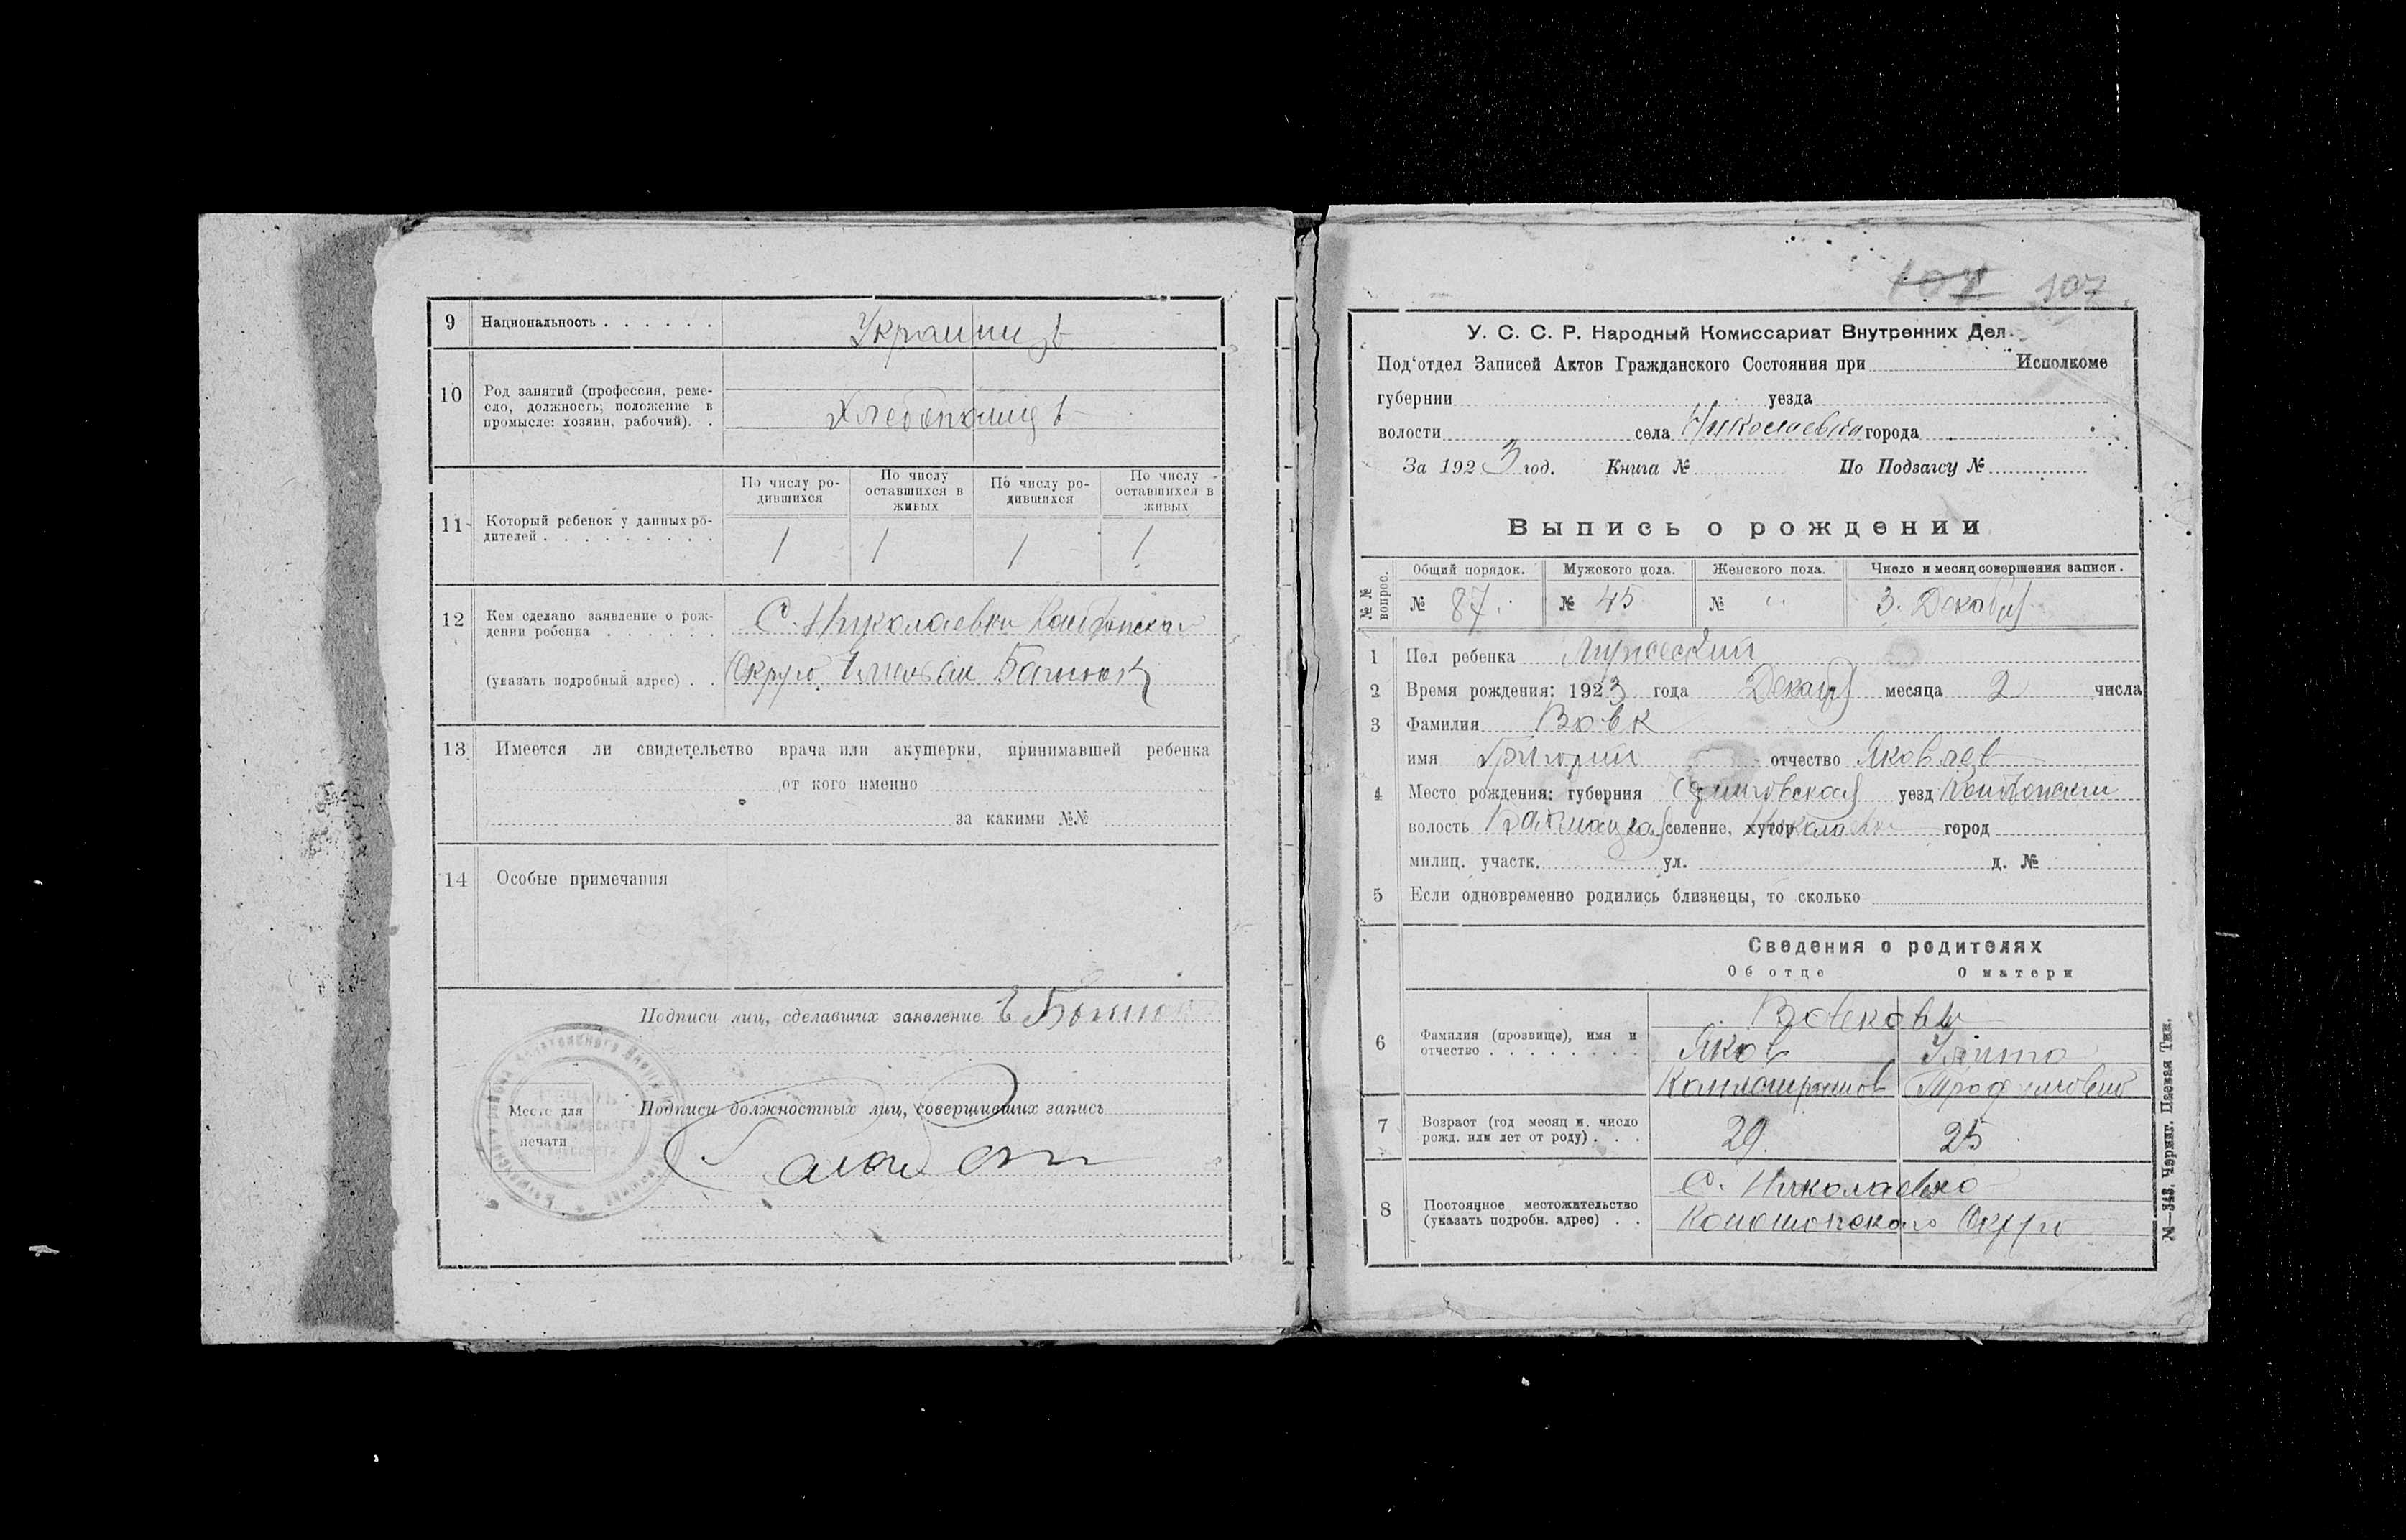 9 Национальность . . . . . .
Украинц
10 Род занятий (профессия, реме-
сло, должность; положение в
промысле: хозяин, рабочий). .
Хлебопашц
11 Который ребенок у данных ро-
дителей . . . . . . . . .
По числу ро-
дившихся
По числу
оставшихся в
живых
По числу ро-
дившихся
По числу
оставшихся в
живых
1 1 1 1
12 Кем сделано заявление о рож-
дении ребенка . . . . . .
С. Николаевки
(указать подробный адрес) . .
Округа
13 Имеется ли свидетельство врача или акушерки, принимавшей ребенка
от кого именно
за какими №№
14 Особые примечания
Подписи лиц, сделавших заявление
Место для
печати
Подписи должностных лиц, совершивших запись
107 107
У. С. С. Р. Народный Комиссариат Внутренних Дел.
Под‘отдел Записей Актов Гражданского Состояния при Исполкоме
губернии уезда
волости села Николаевка города
За 1923 год. Книга № По Подзагсу №
Выпись о рождении
№ № вопрос.
Общий порядок. Мужского пола. Женского пола. Число и месяц совершения записи.
№ 87. № 45 № " 3. Декабря
1 Пол ребенка Мужеский
2 Время рождения: 1923 года Декабря месяца 2 числа
3 Фамилия Вовк
имя Григорий отчество Яковлев
4 Место рождения: губерния Черниговская уезд Конотопский
волость селение, хутор Николаевка город
милиц. участк. ул. д. №
5 Если одновременно родились близнецы, то сколько
Сведения о родителях
Об отце О матери
6 Фамилия (прозвище), имя и
отчество . . . . . . . .
Вовковы
Яков Улита
Трофимовна
7 Возраст (год месяц и. число
рожд. или лет от роду) . . .
29. 25
8 Постоянное местожительство
(указать подробн. адрес) . .
С. Николаевка
Конотопского Округа
№—343. Черниг. Цаевая Тип.